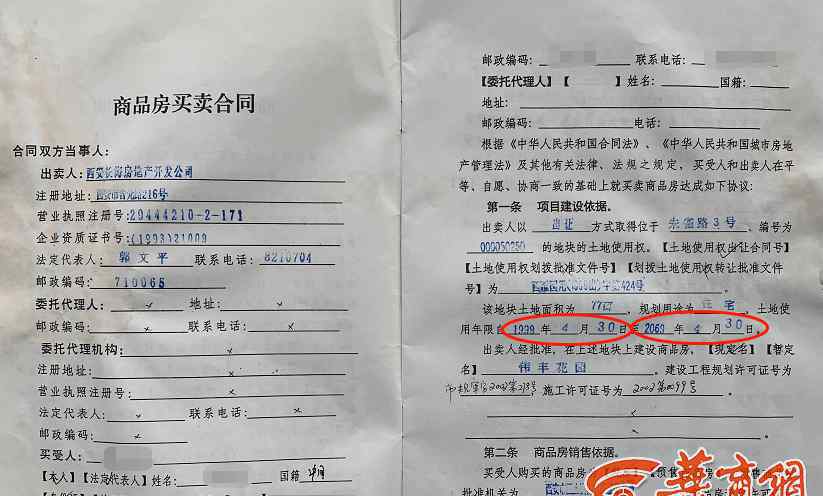 商品房买卖合同
合同双方当事人:
出卖人: 西安长海房地产开发公司
注册地址: 216号
营业执照注册号: 29444210-2-171
企业资质证书号: (1993)21009
法定代表人: 郭文平 联系电话: 8210704
邮政编码: 710065
委托代理人: × 地址: ×
邮政编码: × 联系电话: ×
委托代理机构: ×
注册地址: ×
营业执照注册号: ×
法定代表人: × 联系电话: ×
邮政编码: ×
买受人:
【本人】【法定代表人】姓名: 国籍
邮政编码: 联系电话:
【委托代理人】【 】姓名: 国籍:
地址:
邮政编码: 电话:
根据《中华人民共和国合同法》、《中华人民共和国城市房地
产管理法》及其他有关法律、法规之规定,买受人和出卖人在平
等、自愿、协商一致的基础上就买卖商品房达成如下协议:
第一条 项目建设依据。
出卖人以 出让 方式取得位于 路3号、编号为
000050250 的地块的土地使用权。【土地使用权出让合同号】
【土地使用权划拨批准文件号】【划拨土地使用权转让批准文件
号】为 字第424号
该地块土地面积为 ,规划用途为 住宅 ,土地使
用年限自 1999 年 4 月 30 日至 2069 年 4 月 30 日。
出卖人经批准,在上述地块上建设商品房,【现定名】【暂定
名】 伟丰花园 。建设工程规划许可证号为
施工许可证号为 2002第0099号
×
×
第二条 商品房销售依据。
买受人购买的商品房
批准机关为
华商网